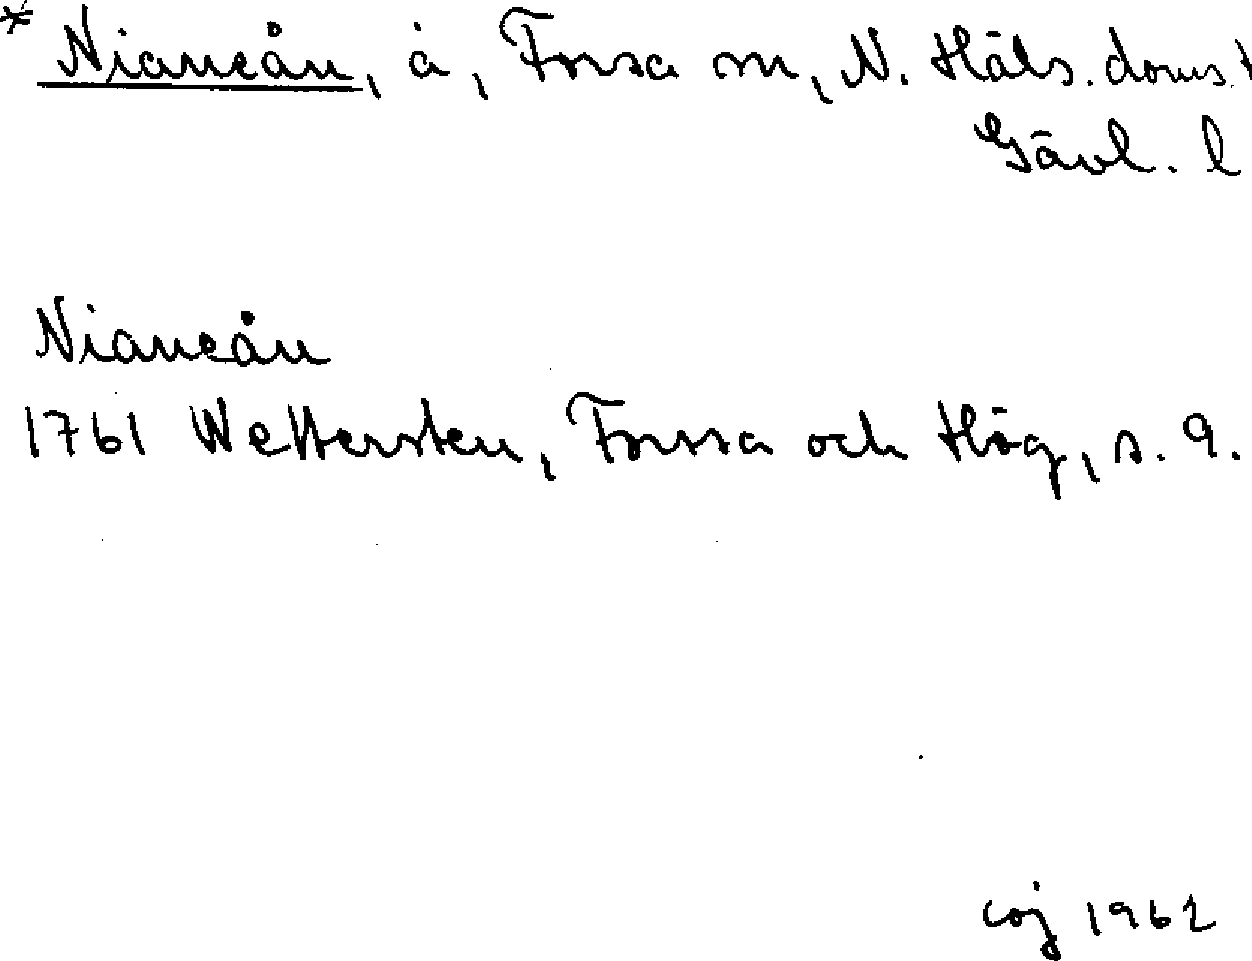 * Nianeån, å, Forsa sn, N. Häls. doms. t
Gävl. l
Nianeån
1761 Wettersten, Forssa och Hög, s. 9.
coj 1962